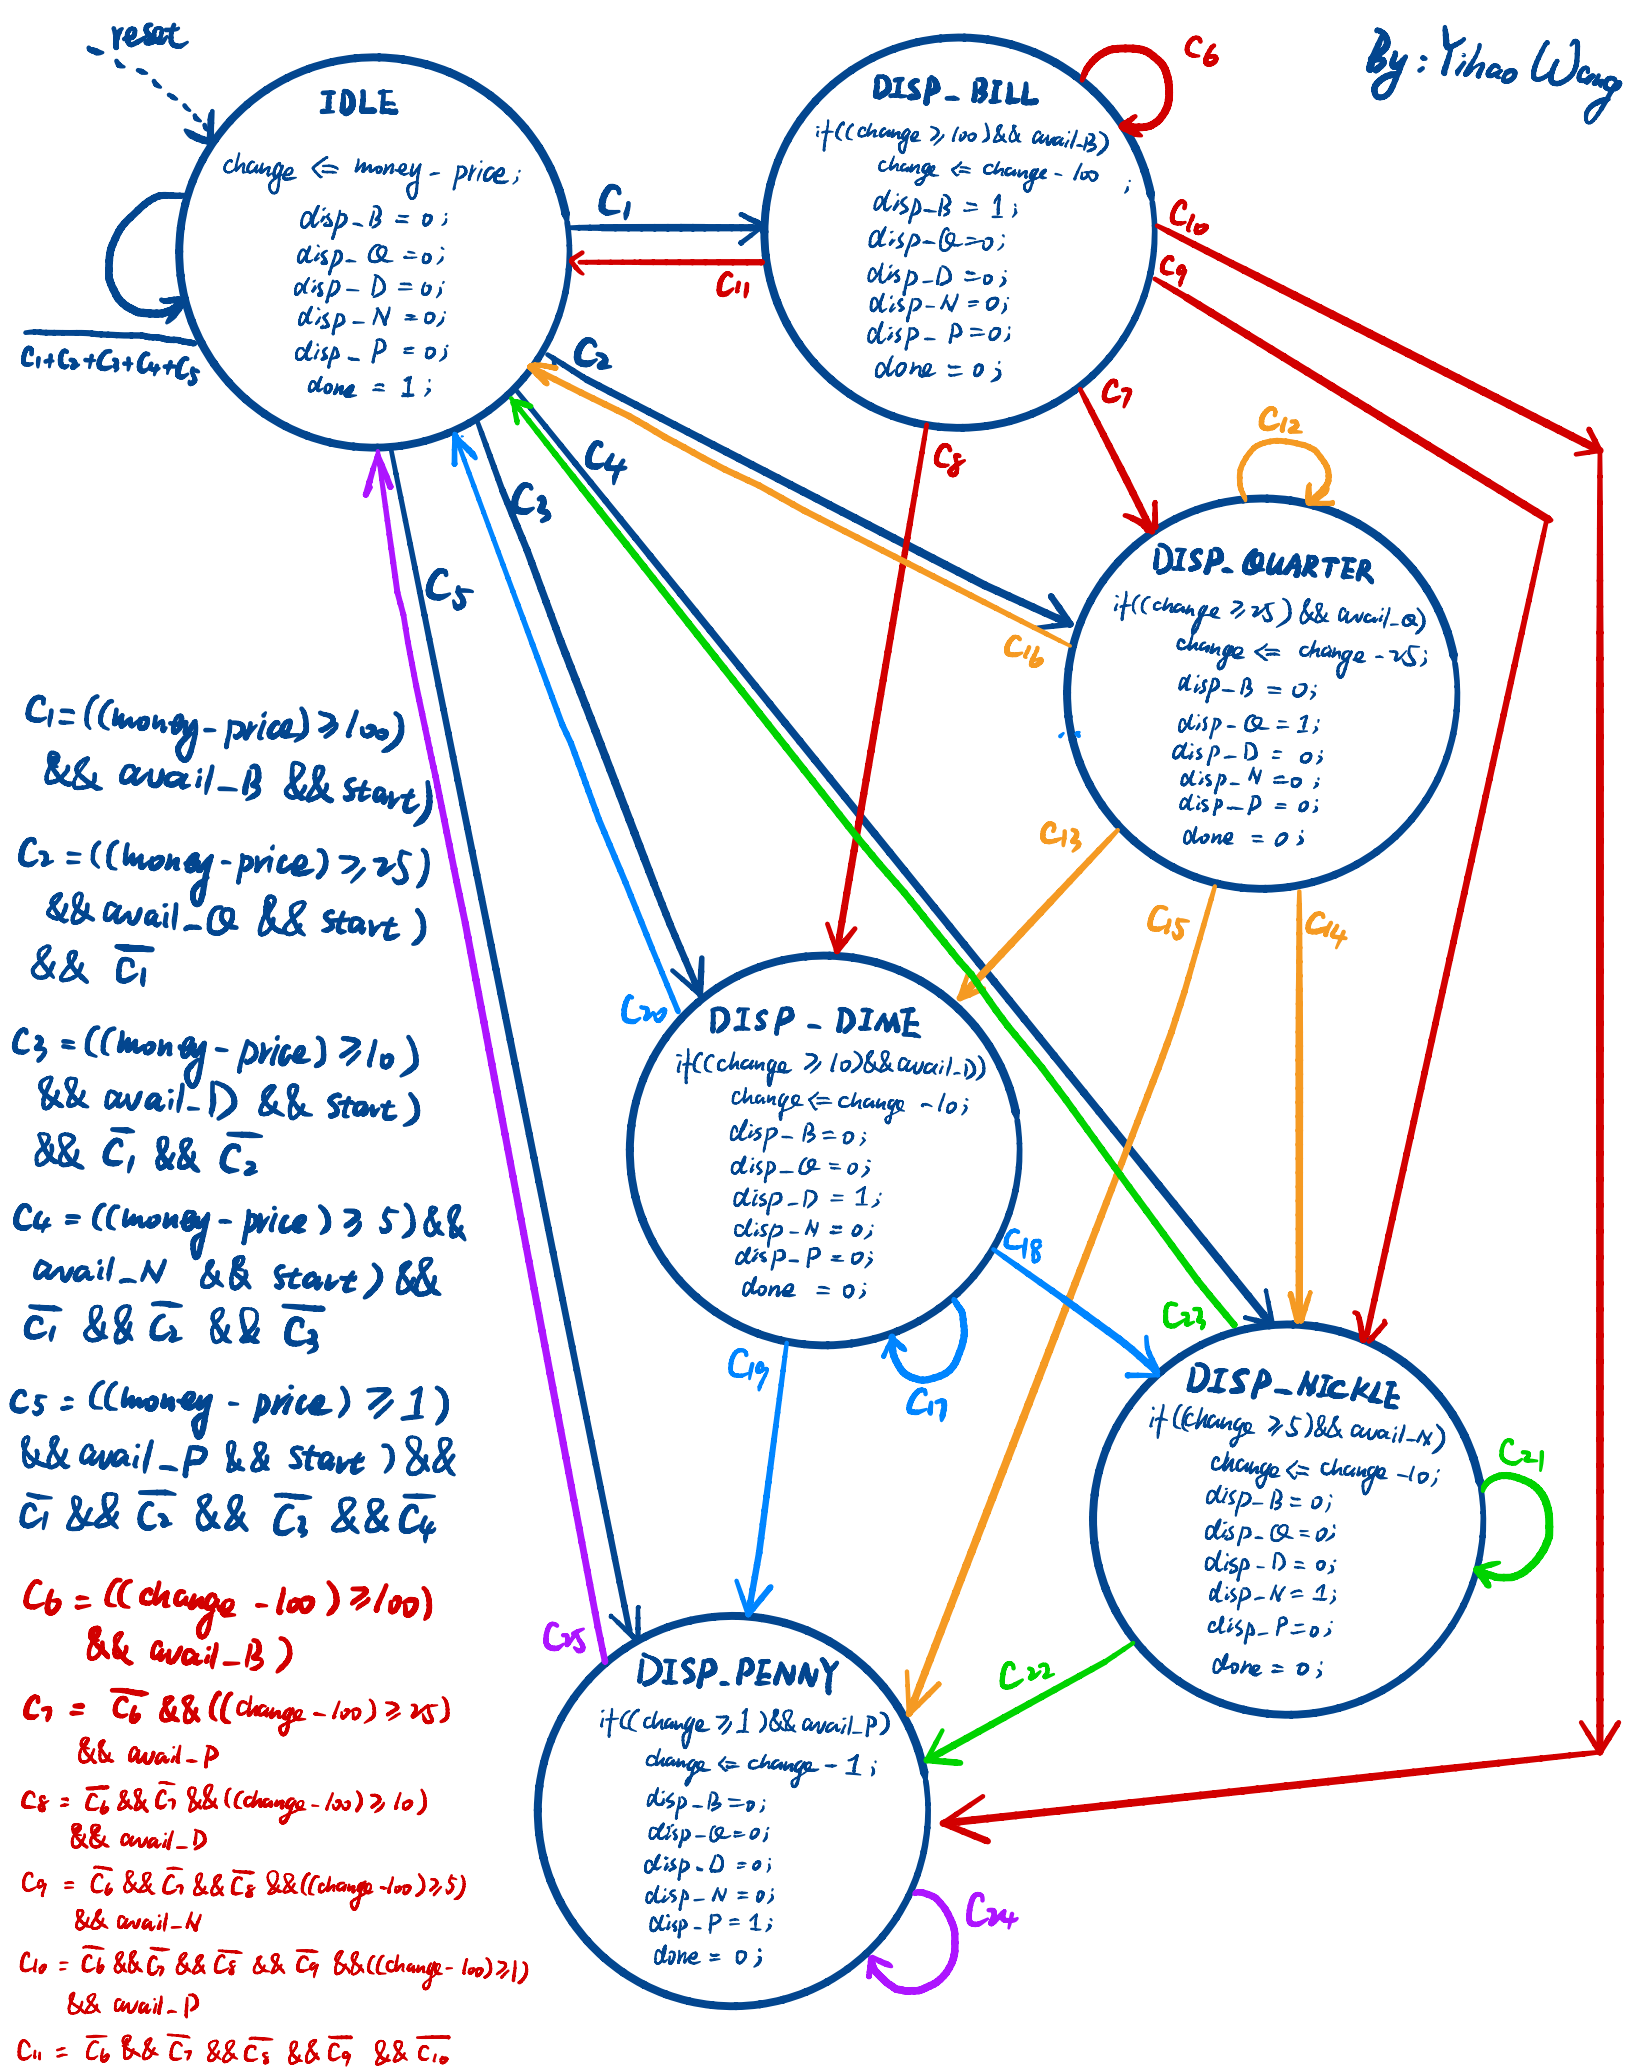 _reset
By: Yihao Wang
IDLE
change <= money - price;
disp_B = 0;
disp_Q = 0;
disp_D = 0;
disp_N = 0;
disp_P = 0;
done = 1;
C1+C2+C3+C4+C5
C1
C11
C2
C3
C4
C5
DISP_BILL
if((change ≥ 100) && avail_B)
change <= change - 100
;
disp_B = 1;
disp_Q = 0;
disp_D = 0;
disp_N = 0;
disp_P = 0;
done = 0;
C6
C10
C9
C7
C8
C12
DISP_QUARTER
if((change ≥ 25) && avail_Q)
change <= change - 25;
disp_B = 0;
disp_Q = 1;
disp_D = 0;
disp_N = 0;
disp_P = 0;
done = 0;
C16
C13
C15
C14
DISP_DIME
if((change ≥ 10) && avail_D))
change <= change - 10;
disp_B = 0;
disp_Q = 0;
disp_D = 1;
disp_N = 0;
disp_P = 0;
done = 0;
C20
C18
C19
C17
C23
DISP_NICKLE
if((change ≥ 5) && avail_N)
change <= change - 10;
disp_B = 0;
disp_Q = 0;
disp_D = 0;
disp_N = 1;
disp_P = 0;
done = 0;
C21
C22
C25
DISP_PENNY
if((change ≥ 1) && avail_P)
change <= change - 1;
disp_B = 0;
disp_Q = 0;
disp_D = 0;
disp_N = 0;
disp_P = 1;
done = 0;
C24
C1 = ((money - price) ≥ 100)
&& avail_B && start)
C2 = ((money - price) ≥ 25)
&& avail_Q && start)
&& C̅1
C3 = ((money - price) ≥ 10)
&& avail_D && start)
&& C̅1 && C̅2
C4 = ((money - price) ≥ 5) &&
avail_N && start) &&
C̅1 && C̅2 && C̅3
C5 = ((money - price) ≥ 1)
&& avail_P && start) &&
C̅1 && C̅2 && C̅3 && C̅4
C6 = ((change - 100) ≥ 100)
&& avail_B)
C7 = C̅6 && ((change - 100) ≥ 25)
&& avail_P
C8 = C̅6 && C̅7 && ((change - 100) ≥ 10)
&& avail_D
C9 = C̅6 && C̅7 && C̅8 && ((change - 100) ≥ 5)
&& avail_N
C10 = C̅6 && C̅7 && C̅8 && C̅9 && ((change - 100) ≥ 1)
&& avail_P
C11 = C̅6 && C̅7 && C̅8 && C̅9 && C̅10